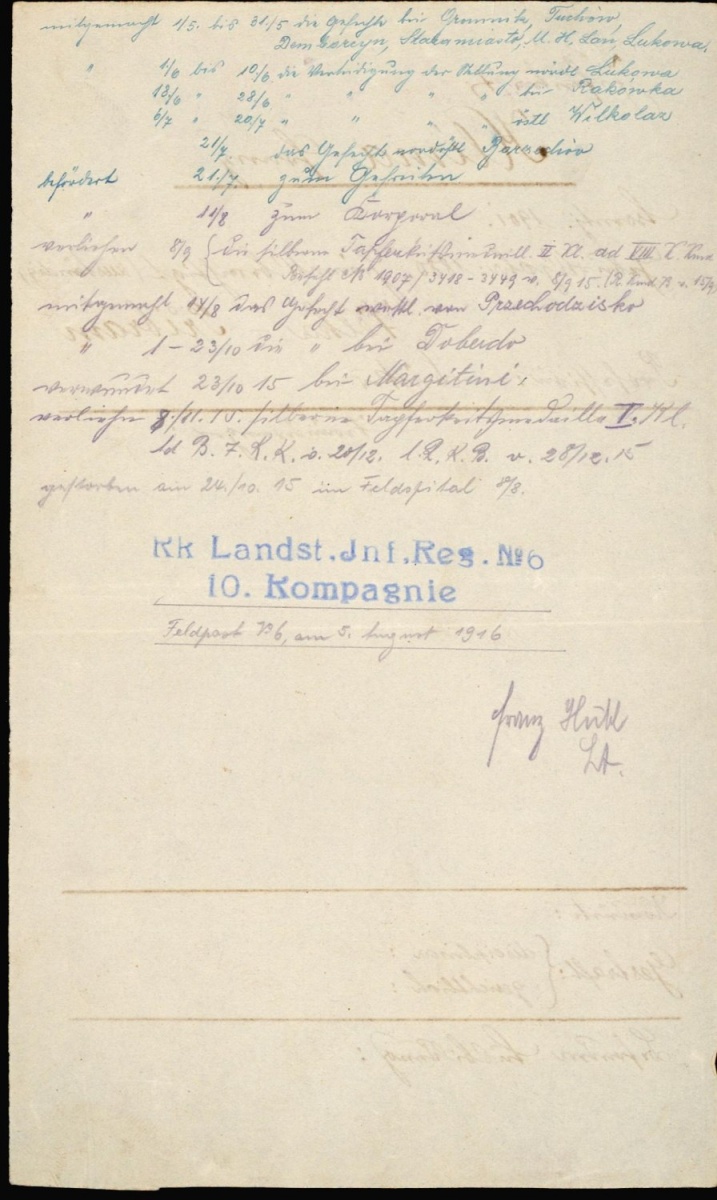 mitgemacht 1/5. bis 31./5 die Gefechte bei Gromnik, Tuchów,
Stare miasto, Lukowa.
" 1/6 bis 10/6 die Verteidigung der Stellung nördl Lukowa
13/6 " 28/6 " " " bei Rakowka
5/7 " 20/7 " " " östl Wilkolaz
21/7 das Gefecht nordöstl
befördert 21./7. zum Gefreiten
" 11/8 zum Korporal
verliehen 8/9 { die silberne Tapferkeitsmedaill. II Kl. ad VIII. K. Kmd
Befehl № 1907/3418-3449 v. 8/9 15.
mitgemacht 14/8 das Gefecht westl. von Przechodzisko
" 1-23/10 die " bei Doberdo
verwundet 23/10 15 bei Margitini.
verliehn 8./11. 15. silberne Tapferkeitsmedaille I. Kl.
ld B. 7. K. K. v. 20/12. l. R. K. B. v. 28/12. 15
gestorben am 24./10. 15 im Feldspital 8/8.
kk Landst. Inf. Reg. № 6
10. Kompagnie
Feldpost 76, am 5. August 1916
Franz
Lt.